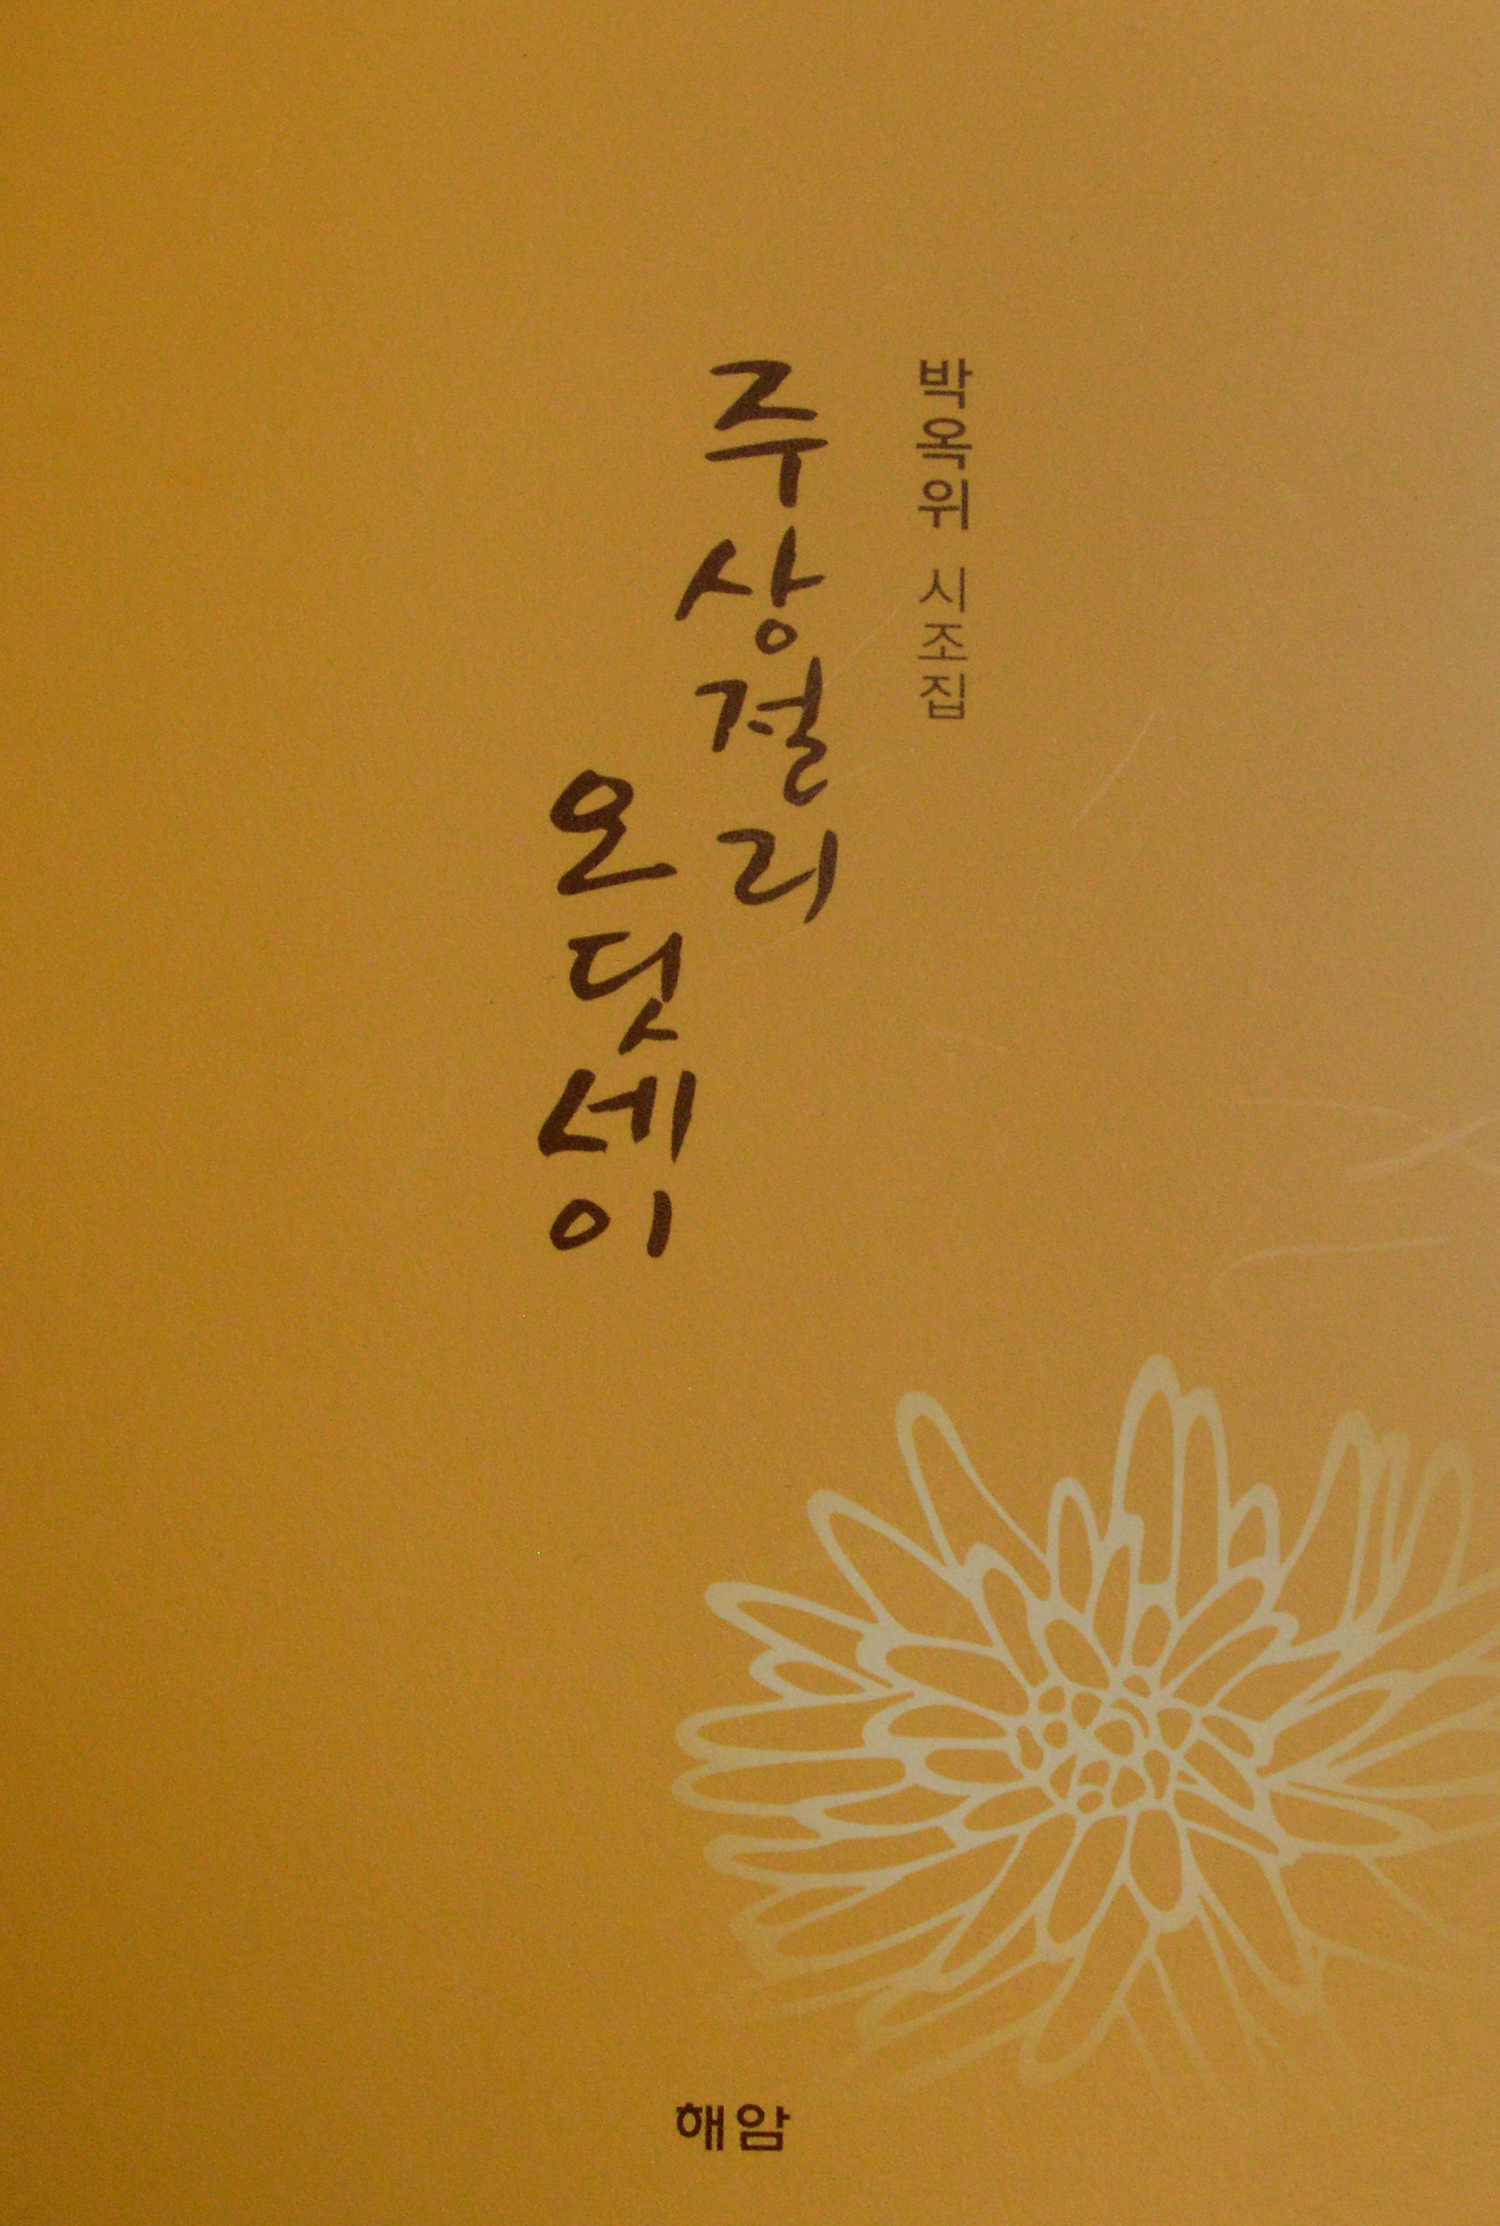 박옥위 시조집
주상절리
오딧세이
해암